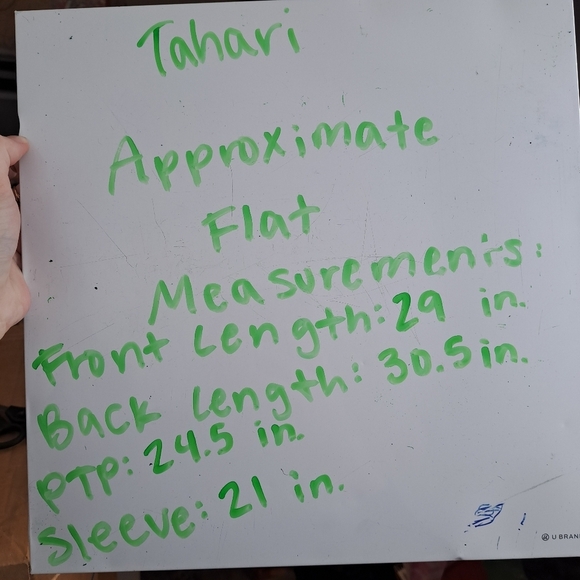 Tahari
Approximate
Flat
Measurements:
Front Length: 29 in.
Back Length: 30.5 in.
PTP: 24.5 in.
Sleeve: 21 in.
U BRAN